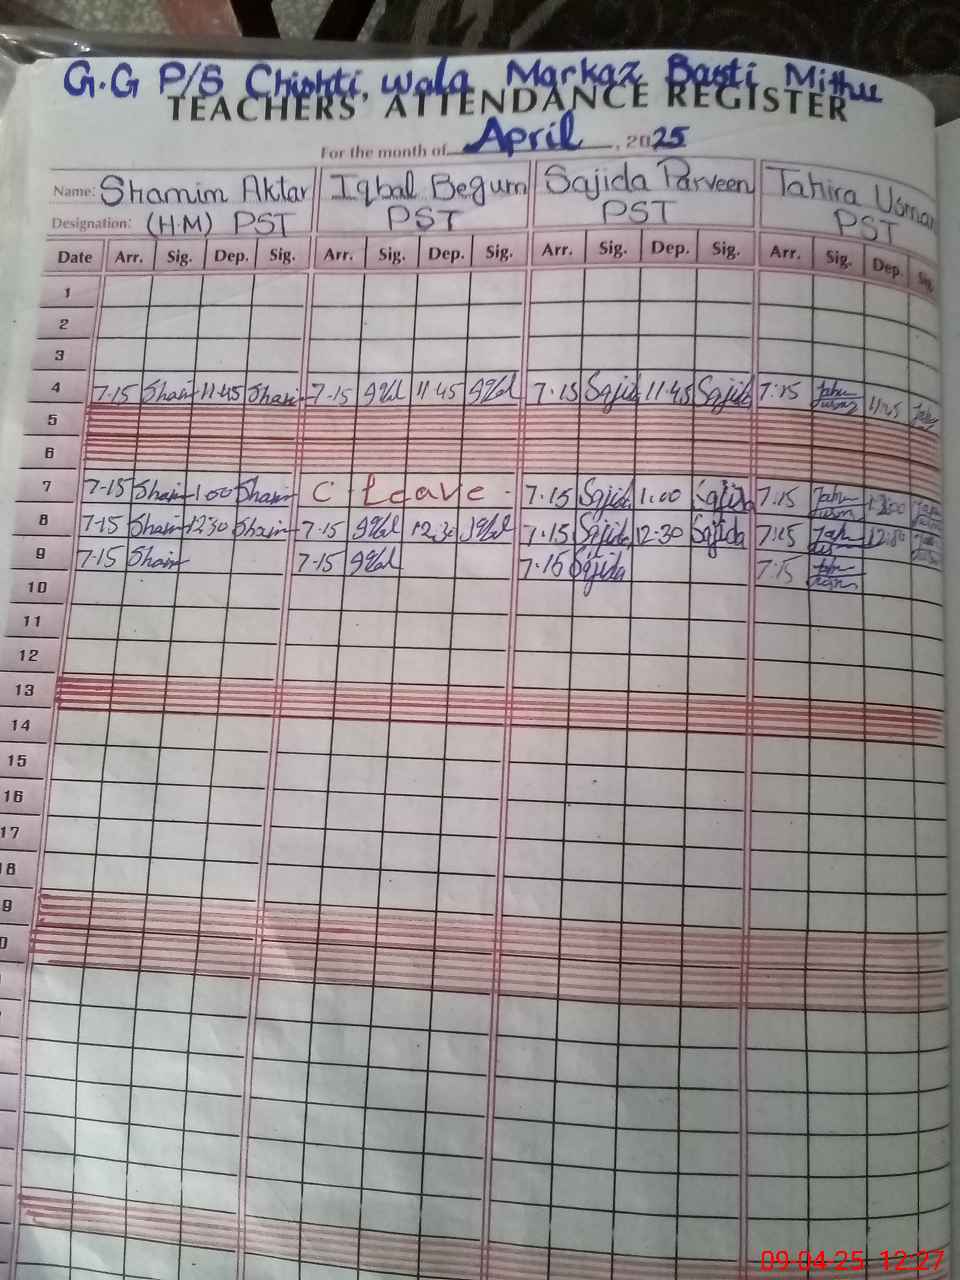 G.G P/S Chishti, wala Markaz Basti Mithu
TEACHERS' ATTENDANCE REGISTER
For the month of April, 2025
Name: Shamim Aktar Iqbal Begum Sajida Parveen Tahira Usman
Designation: (H.M) PST PST PST PST
Date Arr. Sig. Dep. Sig. Arr. Sig. Dep. Sig. Arr. Sig. Dep. Sig. Arr. Sig. Dep. Sig.
1
2
3
4 7-15 Sham 11-45 Sham 7-15 Iqbal 11 45 Iqbal 7.15 Sajida 11.45 Sajida 7:15 11:45
5
6
7 7-15 Sham 1 00 Sham C Leave - 7.15 Sajida 1.00 Sajida 7:15
8 7-15 Sham 12 30 Sham 7-15 Iqbal 12.30 Iqbal 7.15 Sajida 12-30 Sajida 7:15
9 7-15 Sham 7-15 Iqbal 7.15 Sajida 7:15
10
11
12
13
14
15
16
17
8
9
0
09-04-25 12:27